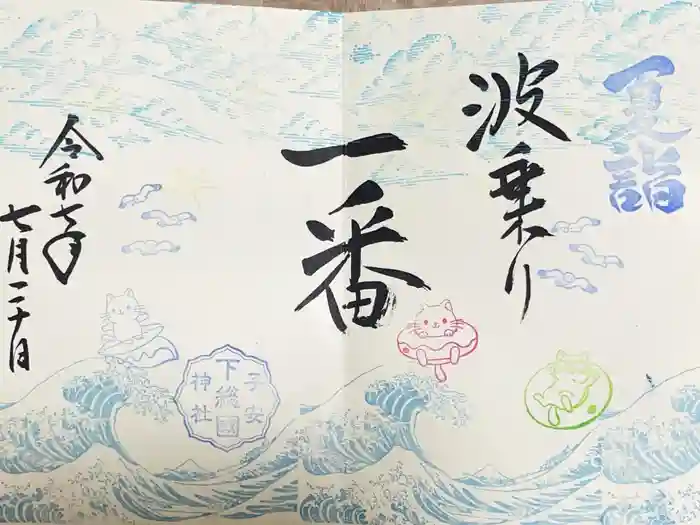 夏詣
波乗り
一番
下総國
子安
神社
令和七年
七月二十日